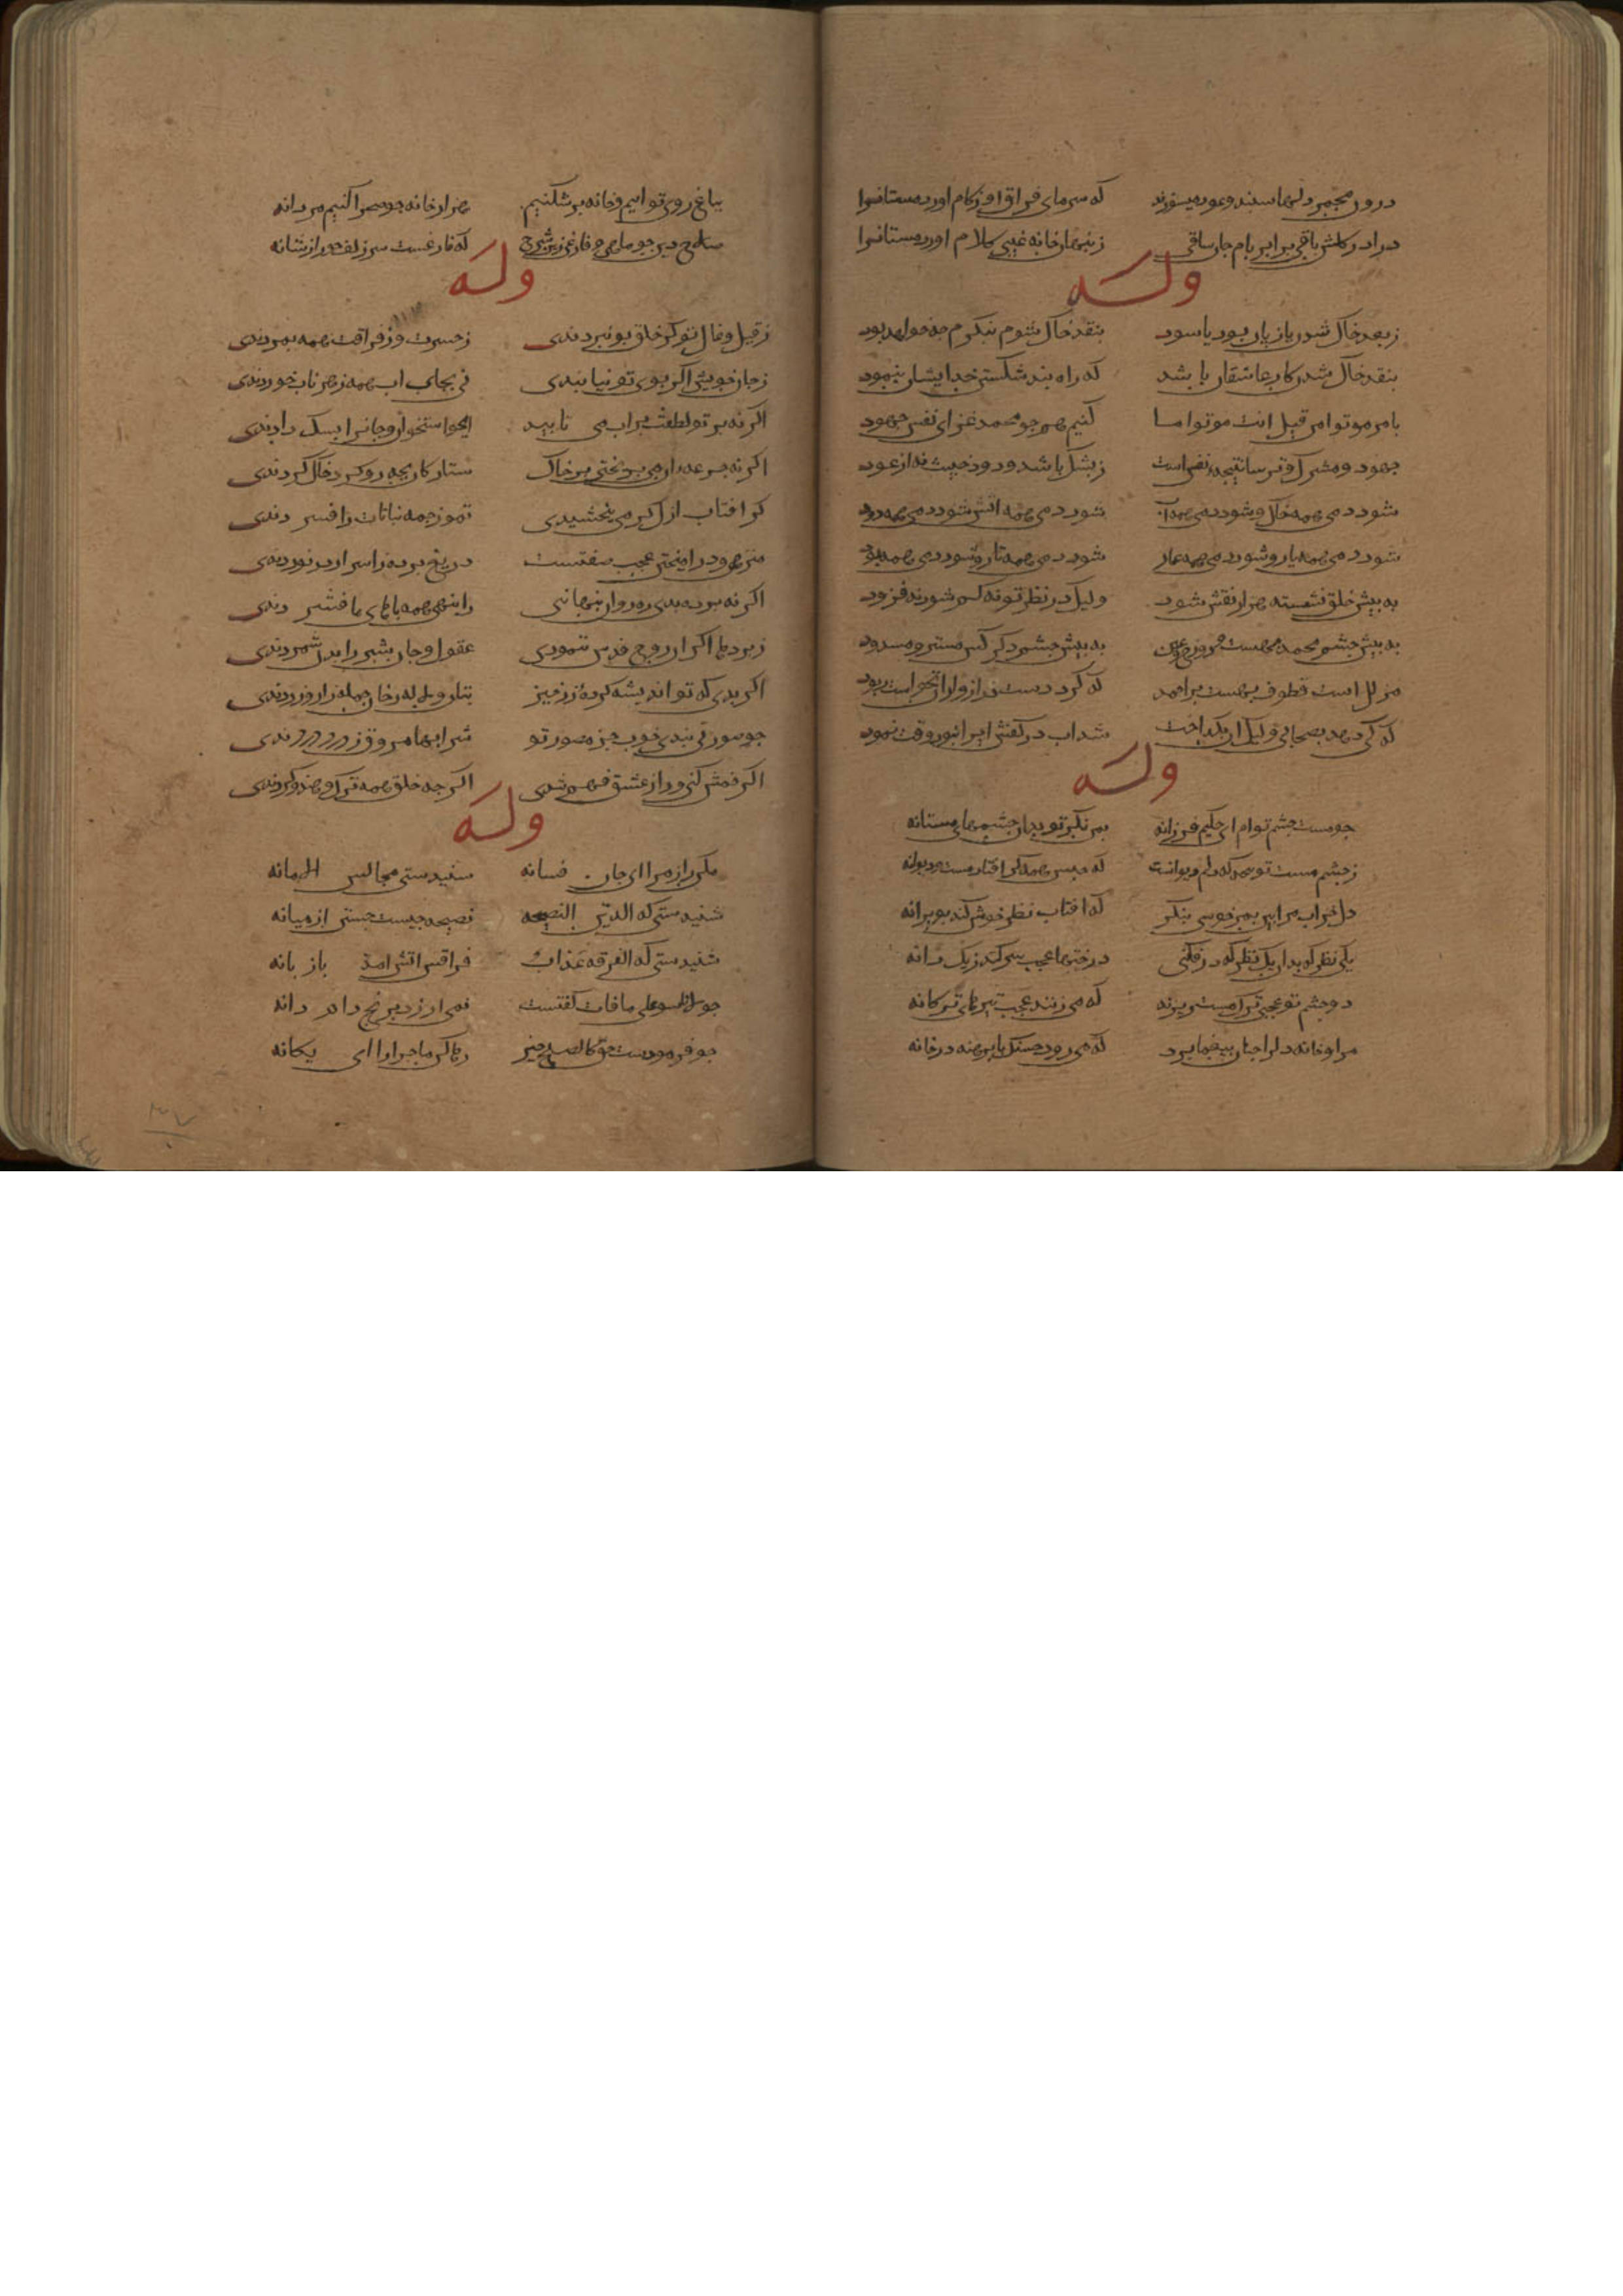 درون مجمر دلها سپند و عود میسوزد که سرمای فراق او زکام اورد مستانرا
درا در کلشن باقی برا بر بام جان ساقی ز پنهان خانه غیبی کلام اورد مستانرا
وله
ز بعد خاک شدن یا زیان بود یا سود بنقد خاک شوم بنکرم چه خواهد بود
بنقد خاک شدن کار عاشقان باشد که راه بند شکستن خدایشان بنمود
بامر موتوا من قبل ان تموتوا ما کنیم همچو محمد غزای نفس جهود
جهود و مشرک و ترسا نتیجه نفس است ز پشک باشد دود خبیث نه از عود
شود دمی همه خاک و شود دمی همه آب شود دمی همه آتش شود دمی همه دود
شود دمی همه یار و شود دمی همه غار شود دمی همه تار و شود دمی همه پود
به پیش خلق نشسته هزار نقش شود ولیک در نظر تو نه کم شود نه فزود
به پیش چشم محمد بهشت و دوزخ عین به پیش چشم دکر کس مستر و مسدود
مذلل است قطوف بهشت بر احمد که کرد دست دراز و از ان بخواست ربود
که تا دهد بصحابی ولیک ان بکداخت شد اب در کفش ایرا نبود وقت نمود
وله
چو مست چشم توام ای حکیم فرزانه بمن نکر تو بدان چشمهای مستانه
ز چشم مست تو که دلم دیوانست که جنس همدکر افتاد مست و دیوانه
دل خراب مرا بین بمن خوشی بنکر که افتاب نظر خوش کند بویرانه
یکی نظر که بدان یک نظر که در فکنی درختها عجب سر کند ز یک دانه
دو چشم تو عجمی ترک مست خونریزند که می زنند عجب تیرهای ترکانه
مرا و خانه دلرا چنان بیغما برد که می رود حسنک پابرهنه در خانه
بباغ روی تو اییم و خانه بر شکنیم هزار خانه چو صحرا کنیم مردانه
صلاح دین چو ماهی و فارغ زین شرح که فارغست سر زلف حور از شانه
وله
ز قیل و قال تو کر خلق بو نبردندی ز حسرت و ز فراقت همه بمردندی
ز جان خویش اکر بوی تو نیابندی فی بجای اب همه زهر ناب خوردندی
اکر نه پرتو لطفت بر اب می تابید استخوان و جانرا بسک دادندی
اکر نه جرعه ان می بریختی بر خاک ستارکان بچه رو کرد خاک کردندی
کر افتاب ازل کرمی نبخشیدی تموز جمله نباتات را فسردندی
منزهی و درامیختن عجب صفتست دریغ پرده اسرار در نوردندی
اکر نه پرده بدی ره روان پنهانی ز انبهی همه پاهای ما فشردندی
ز پردها اکر ان روح قدس ننمودی عقول و جان بشر را بدن شمردندی
اکر بدی که تو اندیشه کرده ز زمین بتان و لاله رخان جمله زار و زردندی
چو صورتی نبدی خوب جز تصور تو شرابهای مروق ز درد دردندی
اکر خمش کنمی راز عشق فهم شدی اکر چه خلق همه ترک و هندو کردندی
وله
مکن راز مرا ای جان فسانه شنیدستی مجالس الامانه
شنیدستی که الدین النصیحه نصیحه چیست جستن از میانه
شنیدستی که الفرقه عذاب فراقش اتش امد باز بانه
چو لا تاسوا علی ما فات کفتست نمی ارزد برنج دام دانه
چو فرمودست حق کالصلح خیر رها کن ماجرا را ای یکانه